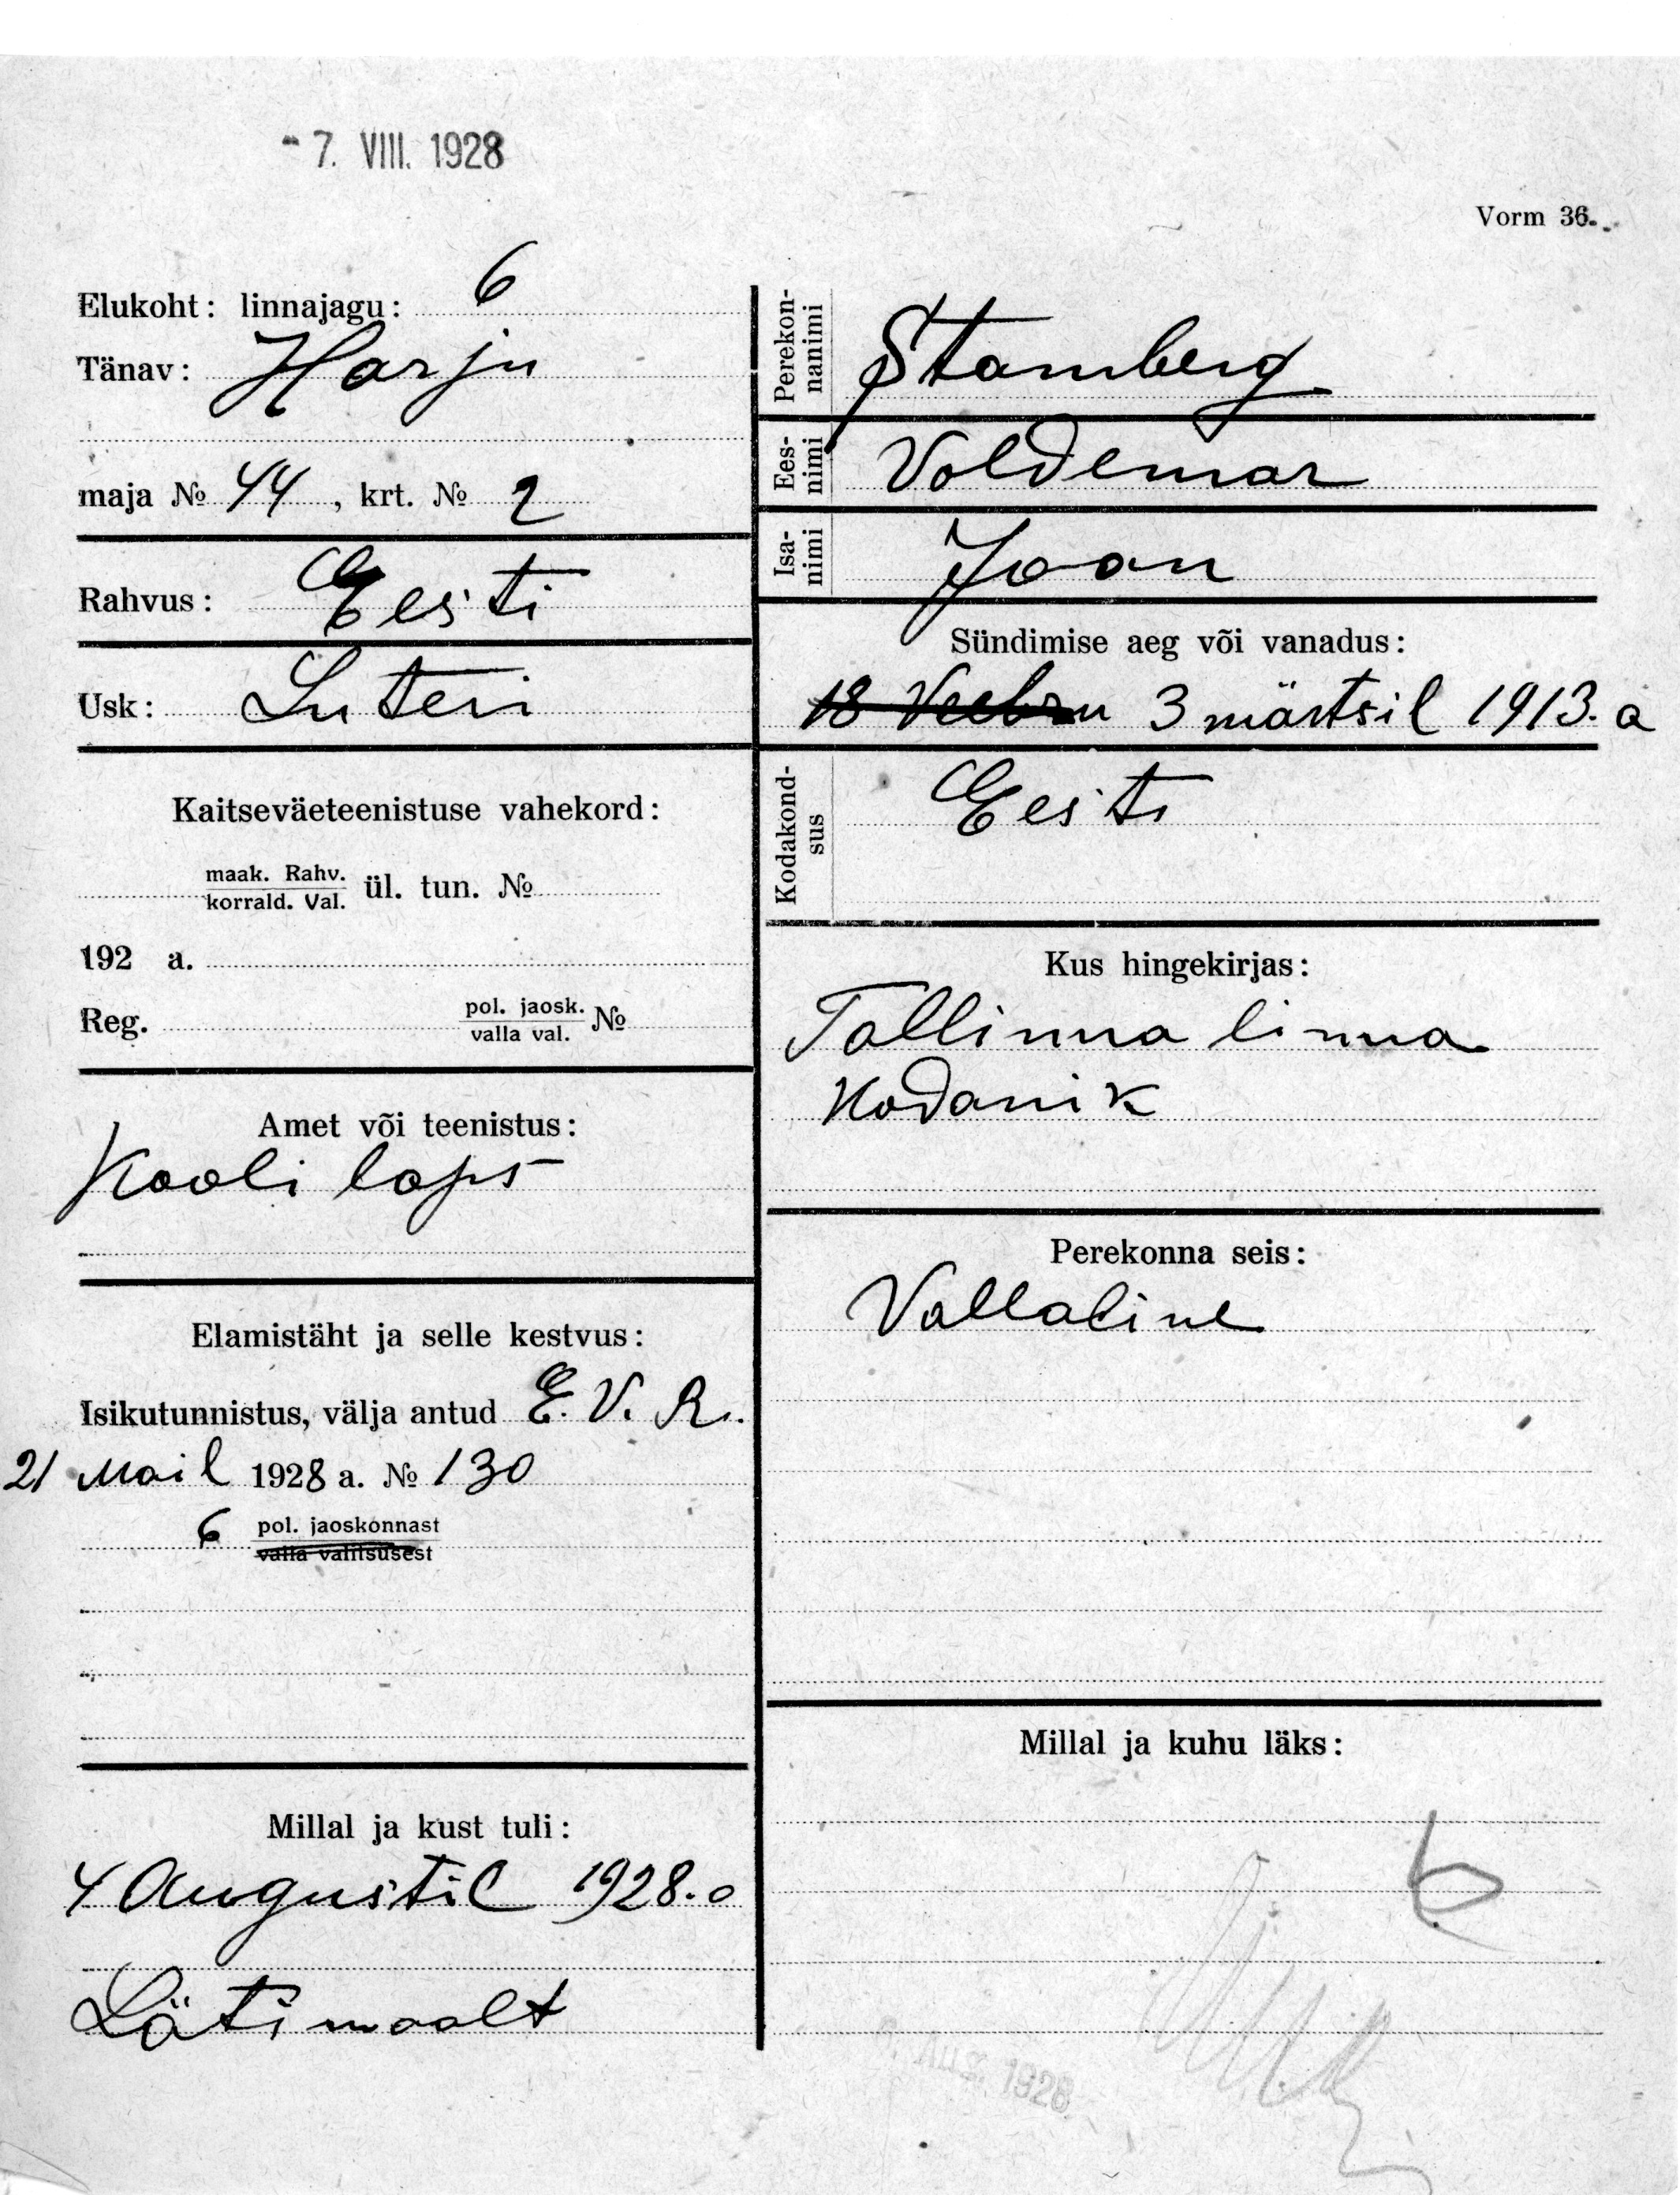 7. VIII. 1928
Vorm 36.
Elukoht: linnajagu: 6
Tänav: Harju
maja № 44, krt. № 2
Rahvus: Eesti
Usk: Luteri
Kaitseväeteenistuse vahekord:
maak. Rahv.
korrald. Val. ül. tun. №
192 a.
Reg. pol. jaosk.
valla val. №
Amet või teenistus:
Kooli laps
Elamistäht ja selle kestvus:
Isikutunnistus, välja antud E. V. R.
21 Mail 1928 a. № 130
6 pol. jaoskonnast
valla valitsusest
Millal ja kust tuli:
4 Augustil 1928. a
Lätimaalt
Perekon-
nanimi
Stamberg
Ees-
nimi
Voldemar
Isa-
nimi
Joan
Sündimise aeg või vanadus:
18 Veebru 3 märtsil 1913. a
Kodakond-
sus
Eesti
Kus hingekirjas:
Tallinna linna
Kodanik
Perekonna seis:
Vallaline
Millal ja kuhu läks:
6
Aug. 1928